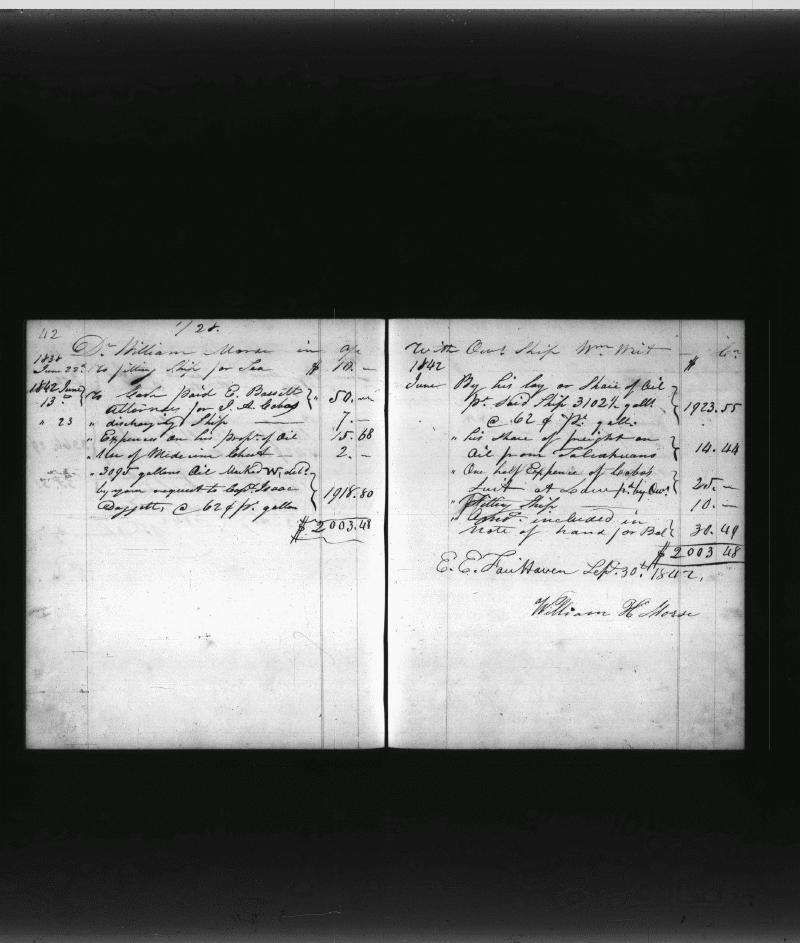 42
1/28.
Dr William Morse in a/c
1838
Jun 22d To fitting Ship for Sea $ 10. —
1842 June
13th To Cash Paid E. Bassett
Attorney for S. A. Cabas " 50. —
" 23 " dischargg Ship 7. —
" Expences on his propn of Oil 15.68
" Use of Medicine Chest 2. —
" 3095 gallons Oil Marked W, deld
by your request to Capt Isaac
Daggett, @ 62 ¢ pr gallon 1918.80
$ 2003.48
With Owrs Ship Wm Wirt Cr
1842 $
June By his lay or Share of Oil
pr Said Ship 3102½ galls
@ 62 ¢ pr gall. 1923.55
" his share of freight on
Oil from Talcahuano 14.44
" One half Expence of Cabos
Suit at Law pd by Owrs 25. —
" Fitting Ship 10. —
" Amot included in
Note of hand for Bal 30.49
$ 2003 48
E. E. FairHaven Sept. 30th 1842.
William H Morse